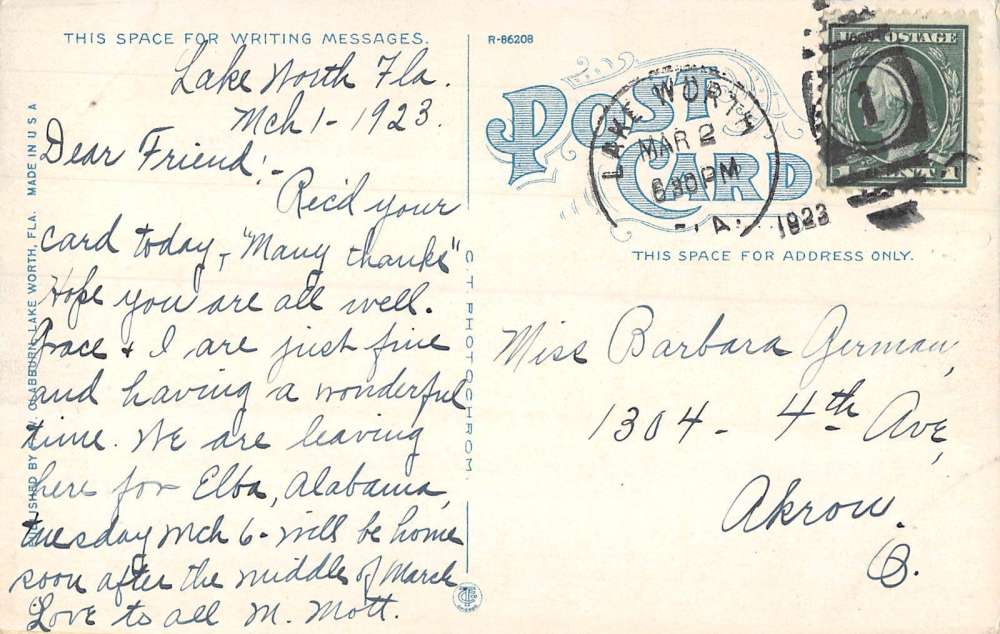 THIS SPACE FOR WRITING MESSAGES.
Lake Worth Fla.
Mch 1 - 1923.
Dear Friend:-
Rec'd your
card today, "Many thanks"
Hope you are all well.
Grace & I are just fine
and having a wonderful
time. We are leaving
here for Elba, Alabama,
Tuesday Mch 6 - will be home
soon after the middle of March
Love to all M. Mott.
PUBLISHED BY OLABBURN, LAKE WORTH, FLA. MADE IN U S A
C. T. PHOTOCHROM.
R-86208
POST
CARD
LAKE WORTH
MAR 2
630 PM
1923
U.S. POSTAGE
1
THIS SPACE FOR ADDRESS ONLY.
Miss Barbara German,
1304 - 4th Ave,
Akron.
O.